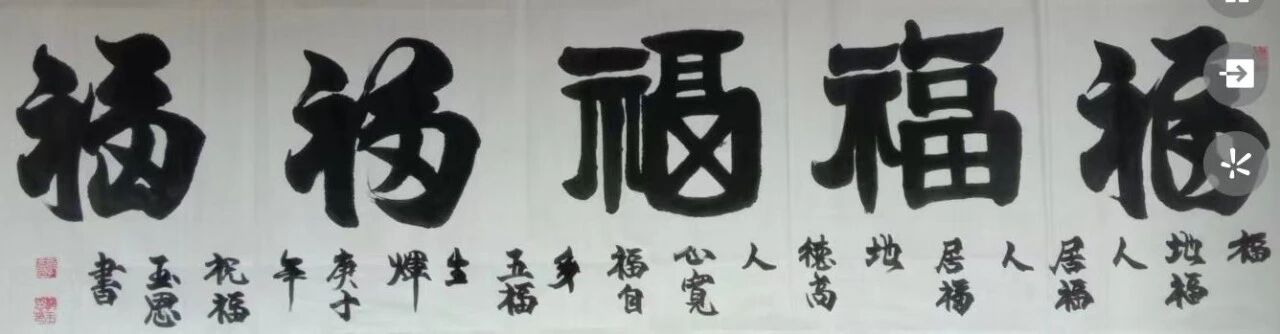 福福福福福
福地福人居福人居福地德高人心寬福自多五福生輝庚子年祝福玉思書